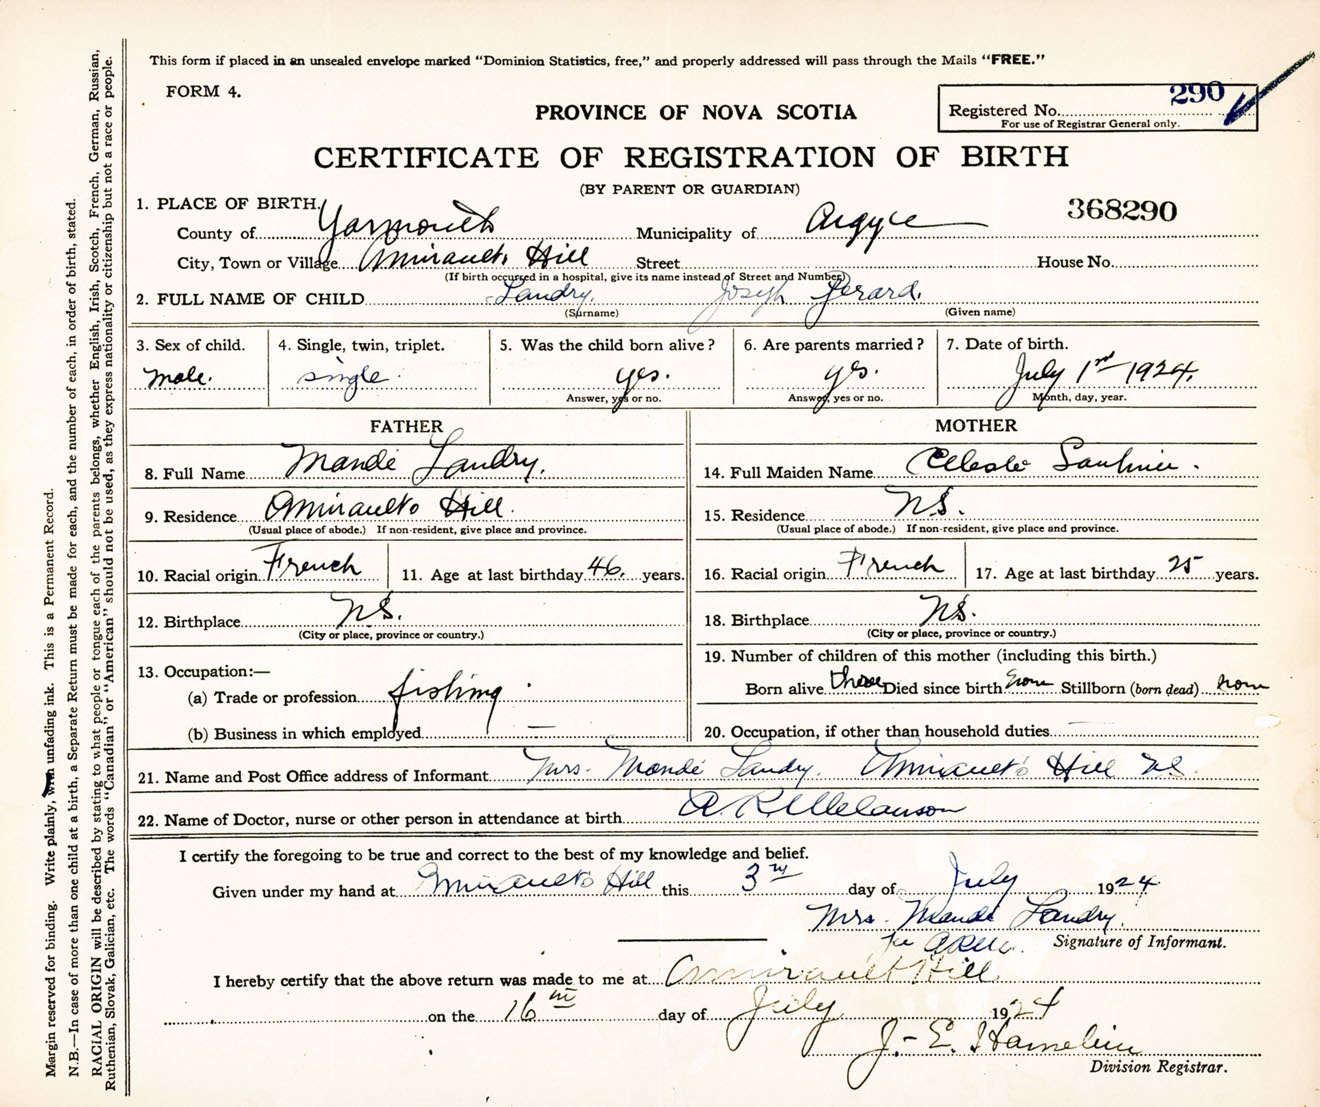 This form if placed in an unsealed envelope marked "Dominion Statistics, free," and properly addressed will pass through the Mails "FREE."
FORM 4.
290
Registered No.
For use of Registrar General only.
PROVINCE OF NOVA SCOTIA
CERTIFICATE OF REGISTRATION OF BIRTH
(BY PARENT OR GUARDIAN)
368290
1. PLACE OF BIRTH.
County of Yarmouth Municipality of Argyle
City, Town or Village Amiraults Hill Street House No.
(If birth occurred in a hospital, give its name instead of Street and Number)
2. FULL NAME OF CHILD Landry, Joseph Gerard.
(Surname) (Given name)
3. Sex of child. 4. Single, twin, triplet. 5. Was the child born alive? 6. Are parents married? 7. Date of birth.
male. single. yes. yes. July 1st 1924.
Answer, yes or no. Answer, yes or no. Month, day, year.
FATHER
8. Full Name Mandé Landry.
9. Residence Amiraults Hill.
(Usual place of abode.) If non-resident, give place and province.
10. Racial origin French 11. Age at last birthday 46. years.
12. Birthplace N.S.
(City or place, province or country.)
13. Occupation:—
(a) Trade or profession fishing
(b) Business in which employed —
MOTHER
14. Full Maiden Name Celeste Saulnier.
15. Residence N.S.
(Usual place of abode.) If non-resident, give place and province.
16. Racial origin French 17. Age at last birthday 25 years.
18. Birthplace N.S.
(City or place, province or country.)
19. Number of children of this mother (including this birth.)
Born alive three Died since birth none Stillborn (born dead) none
20. Occupation, if other than household duties —
21. Name and Post Office address of Informant Mrs. Mandé Landry. Amiraults Hill N.S.
22. Name of Doctor, nurse or other person in attendance at birth A. R. Melanson
I certify the foregoing to be true and correct to the best of my knowledge and belief.
Given under my hand at Amiraults Hill this 3rd day of July 1924
Mrs. Mandé Landry.
per A.R.M. Signature of Informant.
I hereby certify that the above return was made to me at Amirault Hill
on the 16th day of July 1924
J.-E. Hamelin
Division Registrar.
Margin reserved for binding. Write plainly, with unfading ink. This is a Permanent Record.
N.B.—In case of more than one child at a birth, a Separate Return must be made for each, and the number of each, in order of birth, stated.
RACIAL ORIGIN will be described by stating to what people or tongue each of the parents belongs, whether English, Irish, Scotch, French, German, Russian,
Ruthenian, Slovak, Galician, etc. The words "Canadian" or "American" should not be used, as they express nationality or citizenship but not a race or people.